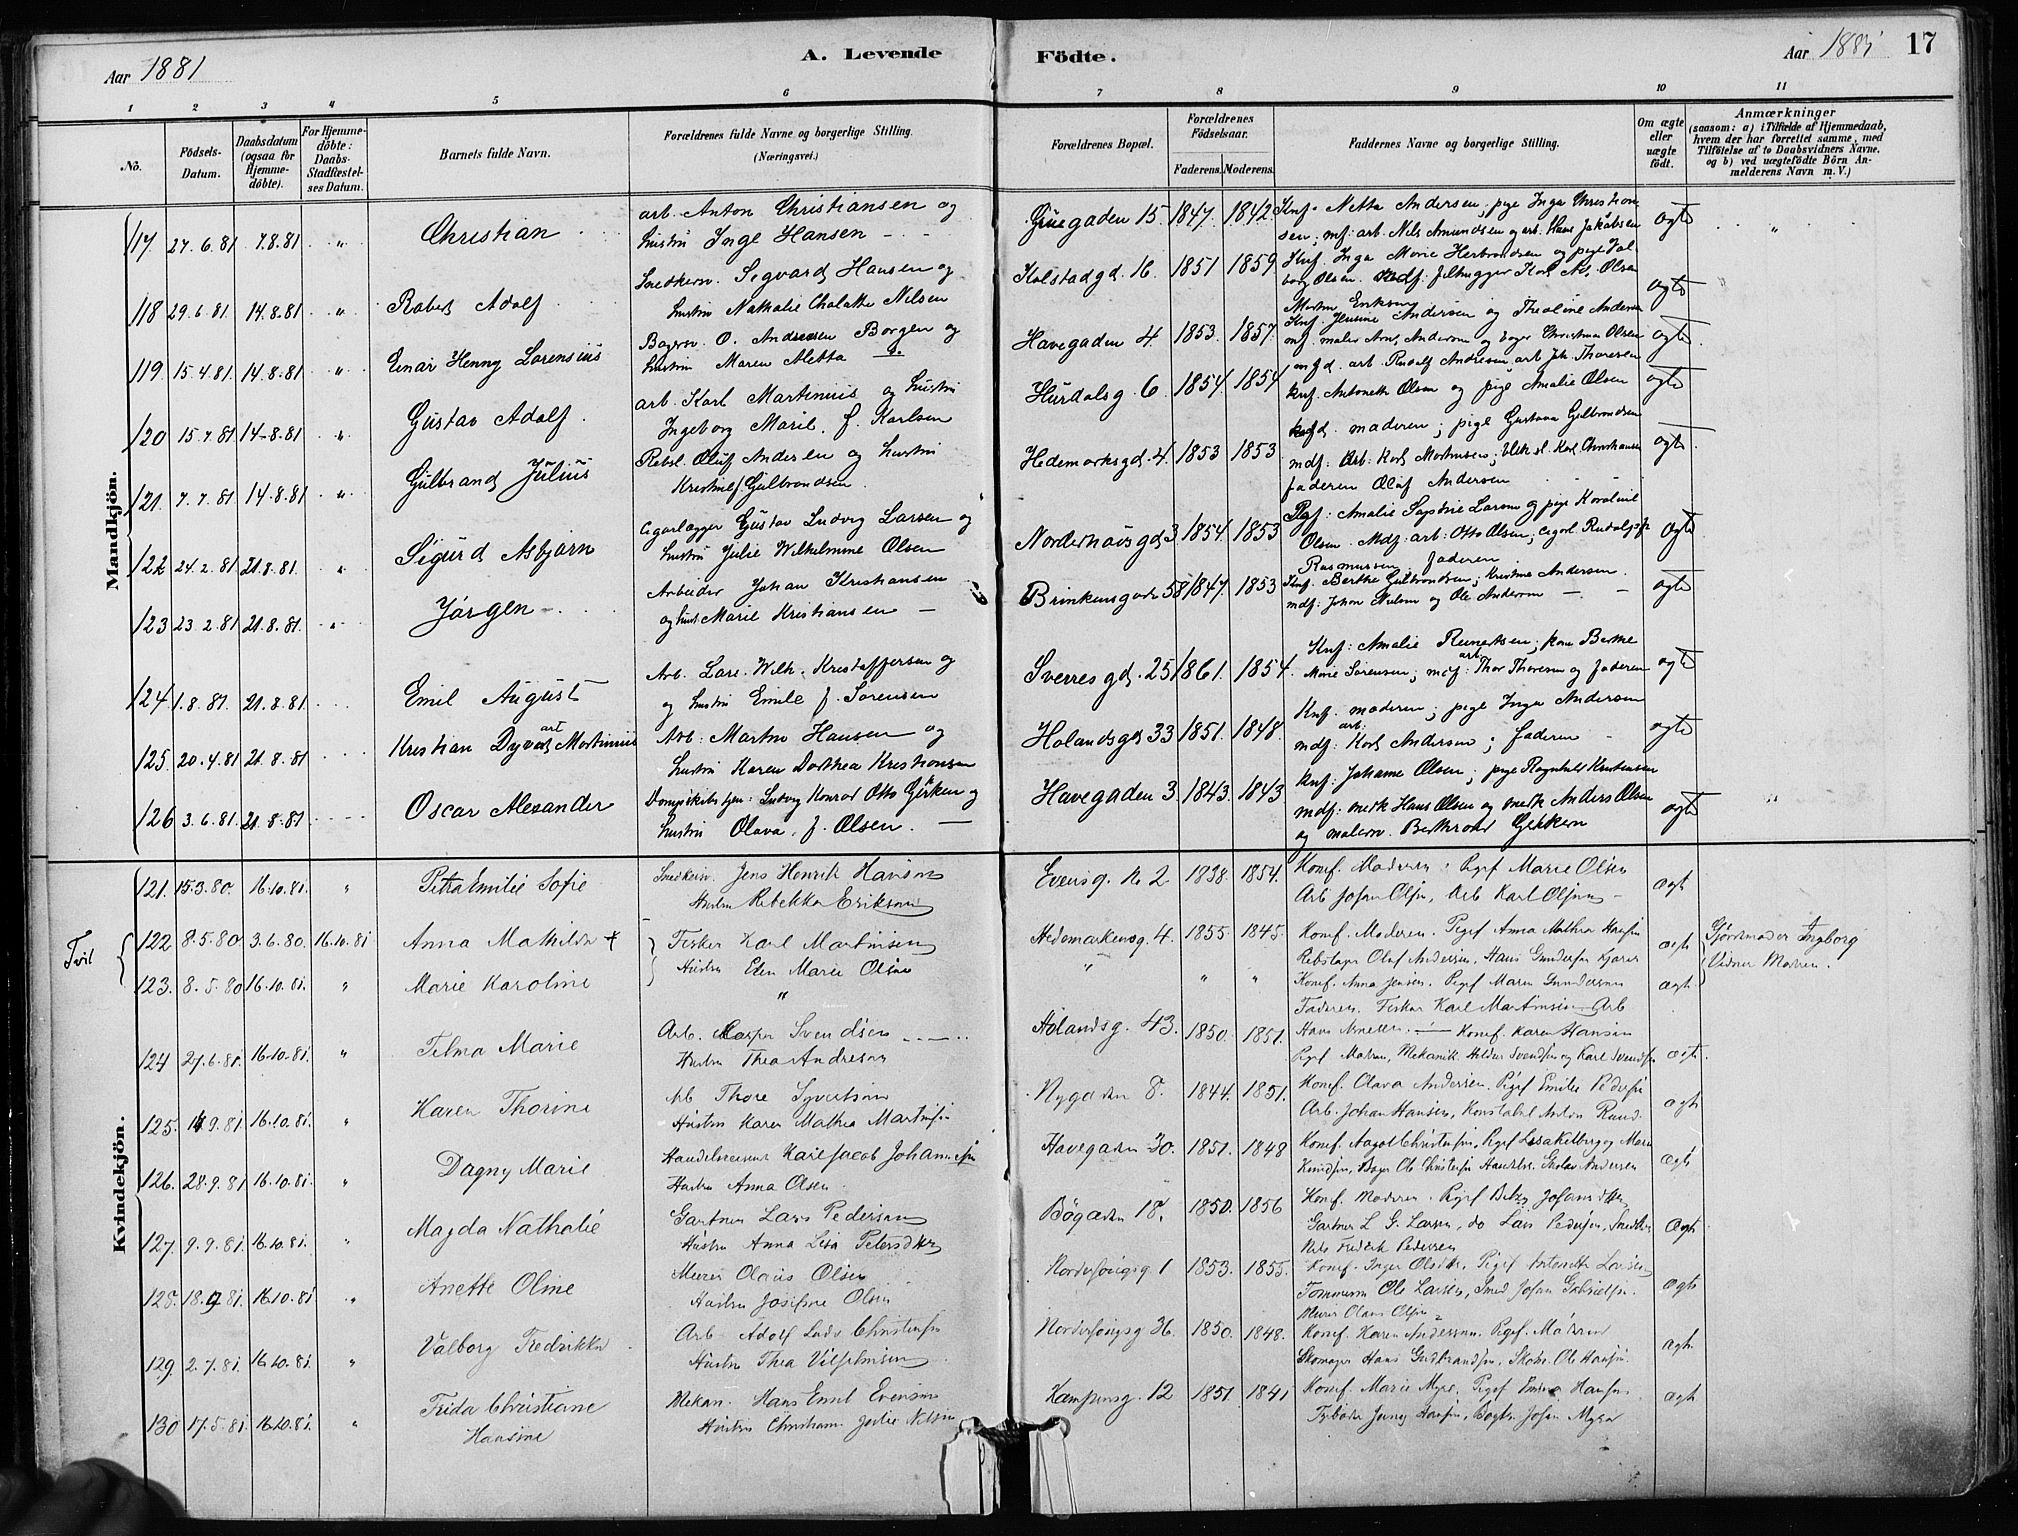 Aar 1881
A. Levende
Födte.
Aar 1881
17
1 2 3 4 5 6 7 8 9 10 11
No.
Födsels-
Datum.
Daabsdatum
(ogsaa for
Hjemme-
döbte).
For Hjemme-
döbte:
Daabs-
Stadfæstel-
ses Datum.
Barnets fulde Navn.
Forældrenes fulde Navne og borgerlige Stilling.
(Næringsvei.)
Forældrenes Bopæl.
Forældrenes
Födselsaar.
Faderens. Moderens.
Faddernes Navne og borgerlige Stilling.
Om ægte
eller
uægte
födt.
Anmærkninger
(saasom: a) i Tilfælde af Hjemmedaab,
hvem der har forrettet samme, med
Tilföielse af to Daabsvidners Navne,
og b) ved uægtefödte Börn An-
melderens Navn m. V.)
Mandkjön.
117 27.6.81 7.8.81 " Christian
arb. Anton Christiansen og
hustru Inge Hansen
Gruegaden 15 1847. 1842
Knf. Netta Andersen, pige Inga Christian
sen; mf: arb. Nils Amundsen og arb. Hans Jakobsen
ægte
118 29.6.81 14.8.81 " Robert Adolf
Snedkersv. Segvard Hansen og
hustru Nathalie Chalatte Nilsen
Kolstadgd. 16. 1851 1859
Knf. Inga Marie Herbrandsen og pige Val
borg Olsen. mdf. filhugger Karl As. Olsen
Martin Eriksen
ægte
119 15.4.81 14.8.81 " Einar Henny Lorensius
Bagersv. O. Andersen Borgen og
hustru Maren Aletta do.
Havegaden 4 1853. 1857.
Knf. Jensine Andersen og Theoline Andersen
mf. maler Arn. Andersen og bager Christian Olsen
ægte
120 15.7.81 14-8.81 " Gustav Adolf
arb. Karl Martinius og hustru
Ingeborg Marie. f. Karlsen
Hurdalsg. 6. 1854. 1854
mfd. arb. Rudolf Andresen, arb. Joh. Thoresen
knf. Antonette Olsen og pige Amalie Olsen
ægte
121. 7.7.81 14.8.81 " Gulbrand Julius
Rebsl. Oluf Andersen og hustru
Kristine f. Gulbrandsen.
Hedemarksgd. 4. 1853 1853
moderen; pige Gustava Gulbrandsen
mdf: Arb. Karl Martinsen; blikksl. Karl Christiansen
faderen Oluf Andersen
ægte
122 24.2.81 21.8.81. " Sigurd Asbjørn
Cigarlægger Gustav Ludvig Larsen og
hustru Julie Wilhelmine Olsen
Norderhovsgd. 3 1854. 1853
Pgf: Amalie Sophie Larsen og pige Karoline
Olsen. Mdf. arb: Otto Olsen; cigarl. Rudolf
Rasmussen, faderen
ægte
123 23.2.81 21.8.81 " Jørgen
Arbeider Johan Kristiansen
og hust. Marie Kristiansen
Brinkensgade 58 1847. 1853
Knf. Berthe Gulbrandsen; Kristine Andersen.
mdf: Johan Nielsen og Ole Andersen
ægte
124 1.8.81. 21.8.81 Emil August
Arb. Lars. Wilh. Kristoffersen og
og hustru Emilie f. Sørensen
Sverresgd. 25 1861. 1854.
Knf: Amalie Reinertsen; kone Berthe
Marie Sørensen; mdf: arb. Thor Thoresen og faderen
ægte
125. 20.4.81 21.8.81 Kristian Dyvert art Martinius
Arb: Martin Hansen og
hustru Karen Dorthea Kristiansen
Holandsgd 33 1851. 1848.
Knf. moderen; pige Inga Andersen
mdf: arb: Karl Andersen; faderen
ægte
126 3.6.81. 21.8.81 Oscar Alexander
Dampskibstjen: Ludvig Konrad Otto Gerken og
hustru Olava. f. Olsen.
Havegaden 3 1843. 1843
knf: Johanne Olsen; pige Ragnhild Kristiansen
mdf: mekk Hans Olsen og mekk Anders Olsen
og malersv. Berthrand Gerken
ægte "
Kvindekjön.
121. 15.3.80. 16.10.81. " Petra Emilie Sofie
Snedkersv. Jens Henrik Hansen
Hustru Rebekka Eriksen
Evensg. No 2 1838. 1854.
Konef. Moderen. Pigef Marie Olsen
Arb Johan Olsen, Arb Karl Olsen
ægte
Tvil
122 8.5.80 3.6.80. 16.10.81 Anna Mathilde +
Fisker Karl Martinsen
Hustru Elen Marie Olsen
Hedemarkensg. 4. 1855. 1845.
Konef. Moderen. Pigef Anna Mathea Hansen
Rebslager Oluf Andersen, Hans Gundersen Kjøres
ægte
Gjordmoder Ingborg
Vidner Madsen.
123. 8.5.80 16.10.81. " Marie Karoline
"
" " "
Konef. Anna Jensen. Pigef Maren Gundersen
Faderen. Fisker Karl Martinsen. Arb
ægte.
124 27.6.81. 16.10.81. " Telma Marie
Arb. Casper Svendsen
Hustru Thea Andresen
Aalandsg. 43. 1850. 1851.
Konef. Karen Hansen
Pigef Madsen, Mekanik. Halder Svendsen og Karl Svendsen
ægte
125. 14 9.81 16.10.81. " Karen Thorine
Arb Thore Syvertsen
Hustru Karen Mathea Martinsen
Nygaden 8. 1844. 1851.
Konef. Olava Andersen. Pigef Emilie Pedersen
Arb. Johan Hansen, Konstabel Anton Ruud.
ægte
126. 28.9.81 16.10.81. " Dagny Marie
Handelsreisende Karl Jacob Johannesen
Hustru Anna Olsen.
Havegaden 30. 1851. 1848
Konef. Aagot Christensen, Pigef Lisa Kelberg og Maren
Knudsen, Bager Ole Christensen, Gustav Andersen
ægte
127. 9.9.81. 16.10.81. " Magda Nathalie
Gartner Lars Pedersen
Hustru Anna Lisa Petersdtter
Bøgaden 18. 1850. 1856
Konef. Moderen. Pigef Betzy Johansdtter
Gartner L. G. Larsen, do Lars Pedersen, Snedker
Nils Fredrik Pedersen
ægte
128. 18.9.81. 16.10.81 " Anette Oline
Murer Olaus Olsen
Hustru Josefine Olsen
Norderhovsg 1 1853. 1855.
Konef. Inger Olsdtter, Pigef Antonette Larsen
Tømmerm Ole Larsen, Smed Johan Gabrielsen.
Murer Olaus Olsen
ægte
129. 2.7.81. 16.10.81. " Valborg Fredrikke
Arb. Adolf Ludv Christensen
Hustru Thea Vilhelmsen
Norderhovsg 36. 1850. 1848.
Konef. Karen Andersen. Pigef. Madsen
Skomager Hans Gudbrandsen, Skom. Ole Hansen.
ægte
130 17.5.81. 16.10.81. " Frida Christiane
Hansine
Mekan. Hans Emil Evensen
Hustru Christiane Gustie Nelsen
Kampensg. 12 1851. 1841
Konef. Marie Myre. Pigef Emma Hansen
Johan Myra
ægte